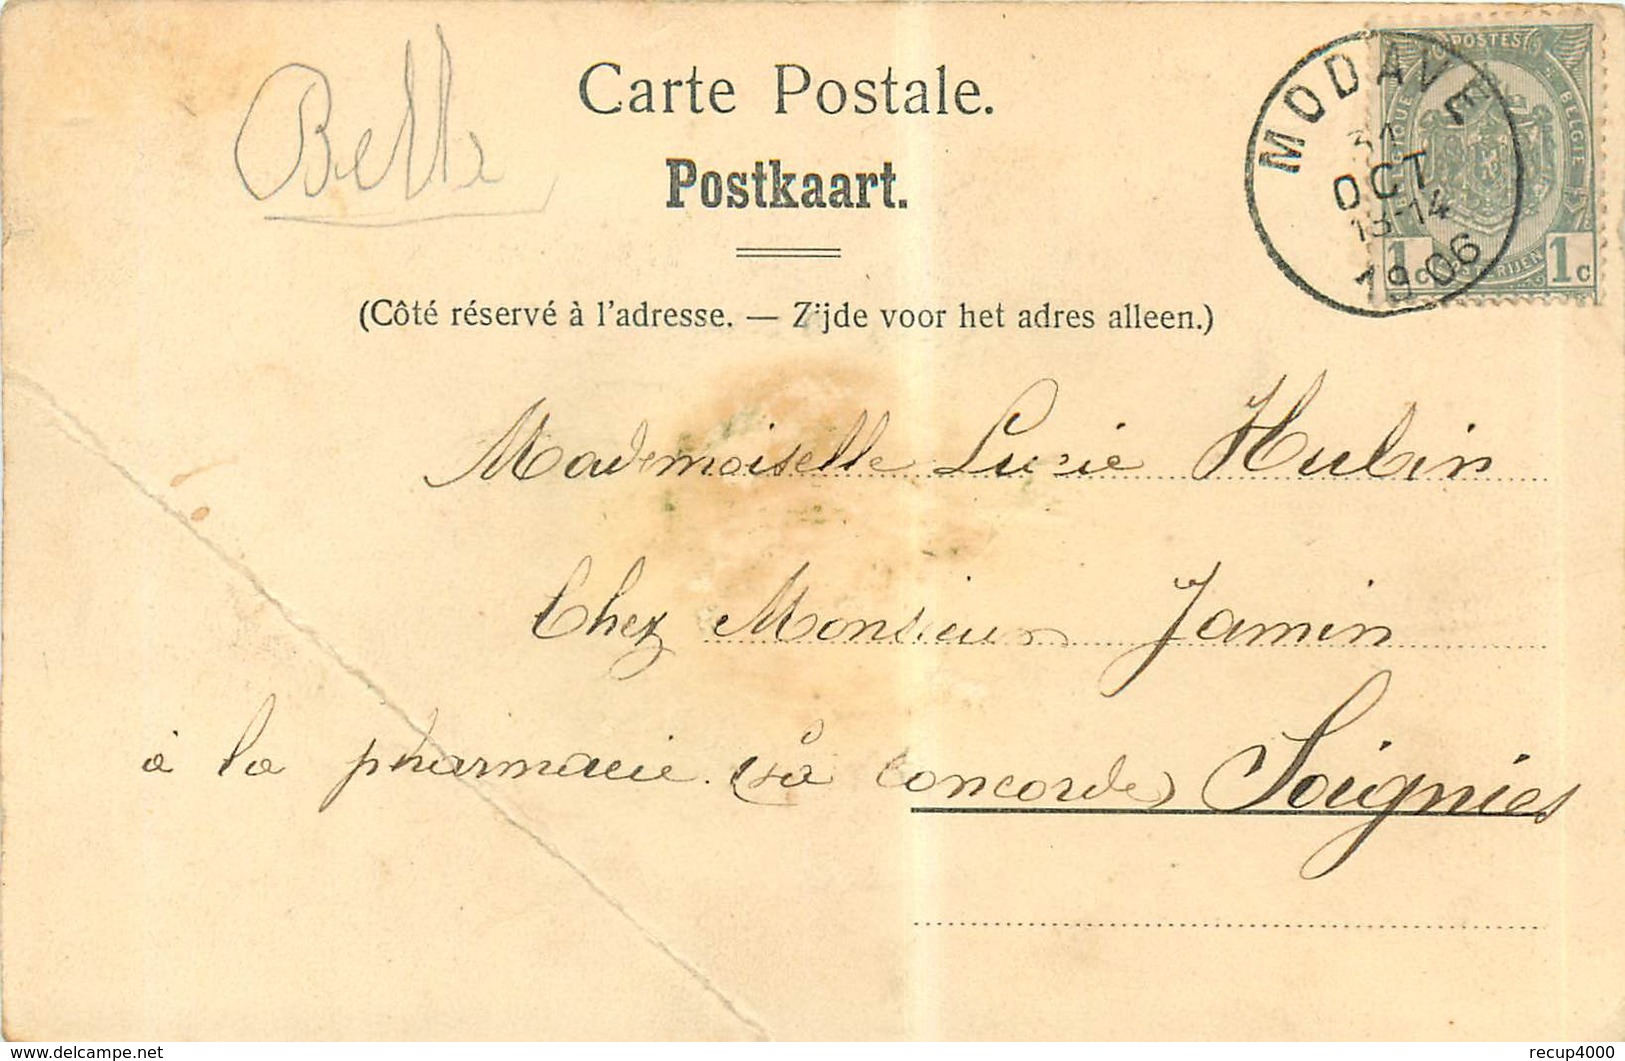 Belle
Carte Postale.
Postkaart.
(Côté réservé à l'adresse. — Zijde voor het adres alleen.)
MODAVE
31
OCT
13-14
1906
POSTES
BELGIE
1c 1c
Mademoiselle Lucie Hubin
Chez Monsieur Jamin
à la pharmacie (à la concorde) Soignies
www.delcampe.net
recup4000